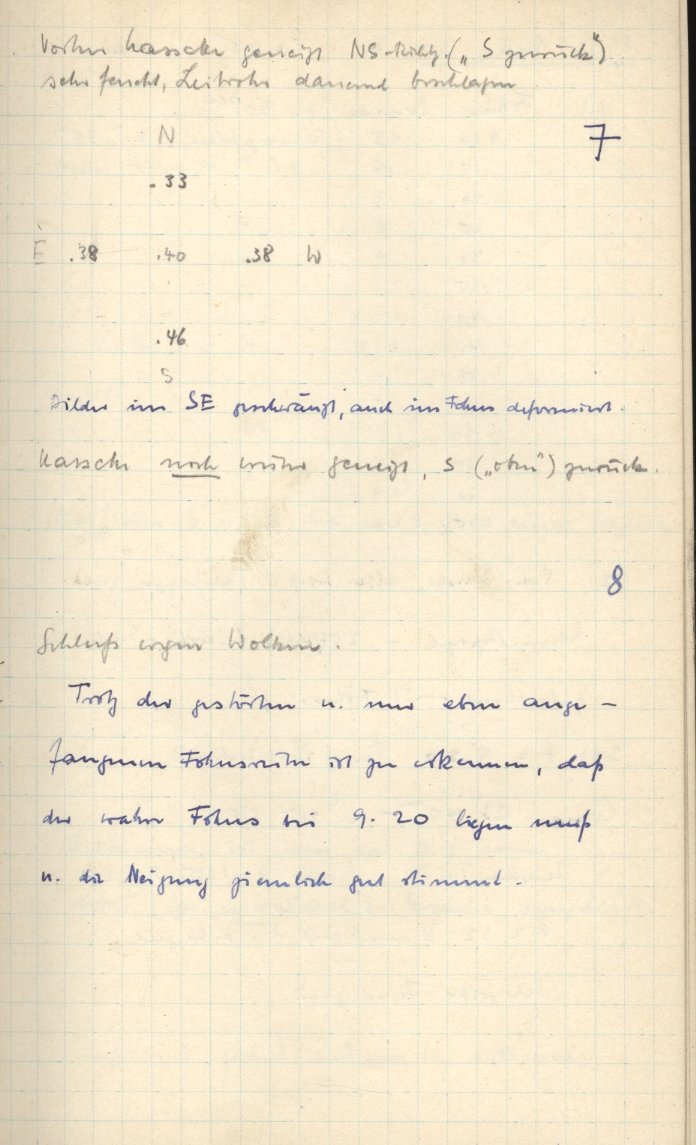 Vorher Kassette geneigt NS-Richtg. („S zurück")
sehr feucht, Leitrohr dauernd beschlagen
7
N
.33
E .38 .40 .38 W
.46
S
Bilder im SE geschwänzt, auch im Fokus deformiert.
Kassette noch weiter geneigt, S („oben") zurück.
8
Schluß wegen Wolken.
Trotz der gestörten u. nur eben ange-
fangenen Fokusreihe ist zu erkennen, daß
der wahre Fokus bei 9.20 liegen muß
u. die Neigung ziemlich gut stimmt.